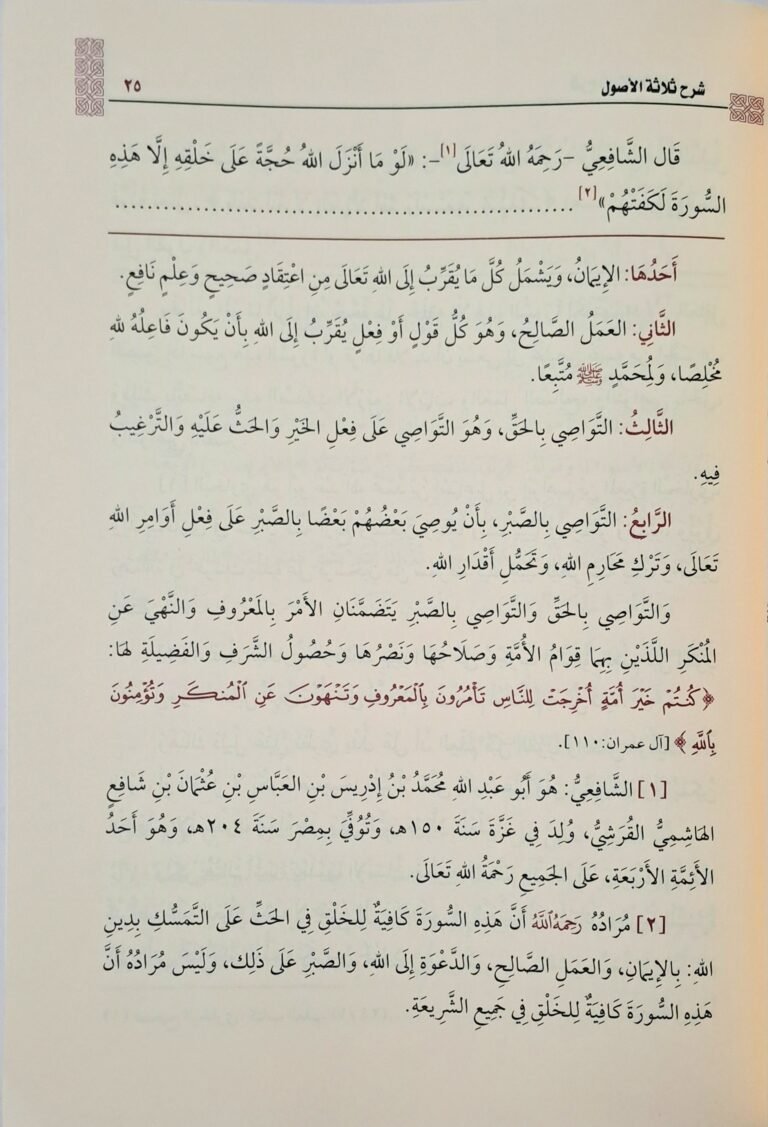 شرح ثلاثة الأصول
٢٥
قَالَ الشَّافِعِيُّ -رَحِمَهُ اللهُ تَعَالَى[١]-: «لَوْ مَا أَنْزَلَ اللهُ حُجَّةً عَلَى خَلْقِهِ إِلَّا هَذِهِ
السُّورَةَ لَكَفَتْهُمْ»[٢] ......................................................
أَحَدُهَا: الإِيمَانُ، وَيَشْمَلُ كُلَّ مَا يُقَرِّبُ إِلَى اللهِ تَعَالَى مِنِ اعْتِقَادٍ صَحِيحٍ وَعِلْمٍ نَافِعٍ.
الثَّانِي: العَمَلُ الصَّالِحُ، وَهُوَ كُلُّ قَوْلٍ أَوْ فِعْلٍ يُقَرِّبُ إِلَى اللهِ بِأَنْ يَكُونَ فَاعِلُهُ للهِ
مُخْلِصًا، وَلِمُحَمَّدٍ ﷺ مُتَّبِعًا.
الثَّالِثُ: التَّوَاصِي بِالحَقِّ، وَهُوَ التَّوَاصِي عَلَى فِعْلِ الخَيْرِ وَالحَثُّ عَلَيْهِ وَالتَّرْغِيبُ
فِيهِ.
الرَّابِعُ: التَّوَاصِي بِالصَّبْرِ، بِأَنْ يُوصِيَ بَعْضُهُمْ بَعْضًا بِالصَّبْرِ عَلَى فِعْلِ أَوَامِرِ اللهِ
تَعَالَى، وَتَرْكِ مَحَارِمِ اللهِ، وَتَحَمُّلِ أَقْدَارِ اللهِ.
وَالتَّوَاصِي بِالحَقِّ وَالتَّوَاصِي بِالصَّبْرِ يَتَضَمَّنَانِ الأَمْرَ بِالمَعْرُوفِ وَالنَّهْيَ عَنِ
المُنْكَرِ اللَّذَيْنِ بِهِمَا قِوَامُ الأُمَّةِ وَصَلَاحُهَا وَنَصْرُهَا وَحُصُولُ الشَّرَفِ وَالفَضِيلَةِ لَهَا:
﴿كُنتُمْ خَيْرَ أُمَّةٍ أُخْرِجَتْ لِلنَّاسِ تَأْمُرُونَ بِٱلْمَعْرُوفِ وَتَنْهَوْنَ عَنِ ٱلْمُنكَرِ وَتُؤْمِنُونَ
بِٱللَّهِ﴾ [آل عمران:١١٠].
[١] الشَّافِعِيُّ: هُوَ أَبُو عَبْدِ اللهِ مُحَمَّدُ بْنُ إِدْرِيسَ بْنِ العَبَّاسِ بْنِ عُثْمَانَ بْنِ شَافِعٍ
الهَاشِمِيُّ القُرَشِيُّ، وُلِدَ فِي غَزَّةَ سَنَةَ ١٥٠هـ، وَتُوُفِّيَ بِمِصْرَ سَنَةَ ٢٠٤هـ، وَهُوَ أَحَدُ
الأَئِمَّةِ الأَرْبَعَةِ، عَلَى الجَمِيعِ رَحْمَةُ اللهِ تَعَالَى.
[٢] مُرَادُهُ رَحِمَهُ ٱللَّهُ أَنَّ هَذِهِ السُّورَةَ كَافِيَةٌ لِلخَلْقِ فِي الحَثِّ عَلَى التَّمَسُّكِ بِدِينِ
اللهِ: بِالإِيمَانِ، وَالعَمَلِ الصَّالِحِ، وَالدَّعْوَةِ إِلَى اللهِ، وَالصَّبْرِ عَلَى ذَلِكَ، وَلَيْسَ مُرَادُهُ أَنَّ
هَذِهِ السُّورَةَ كَافِيَةٌ لِلخَلْقِ فِي جَمِيعِ الشَّرِيعَةِ.